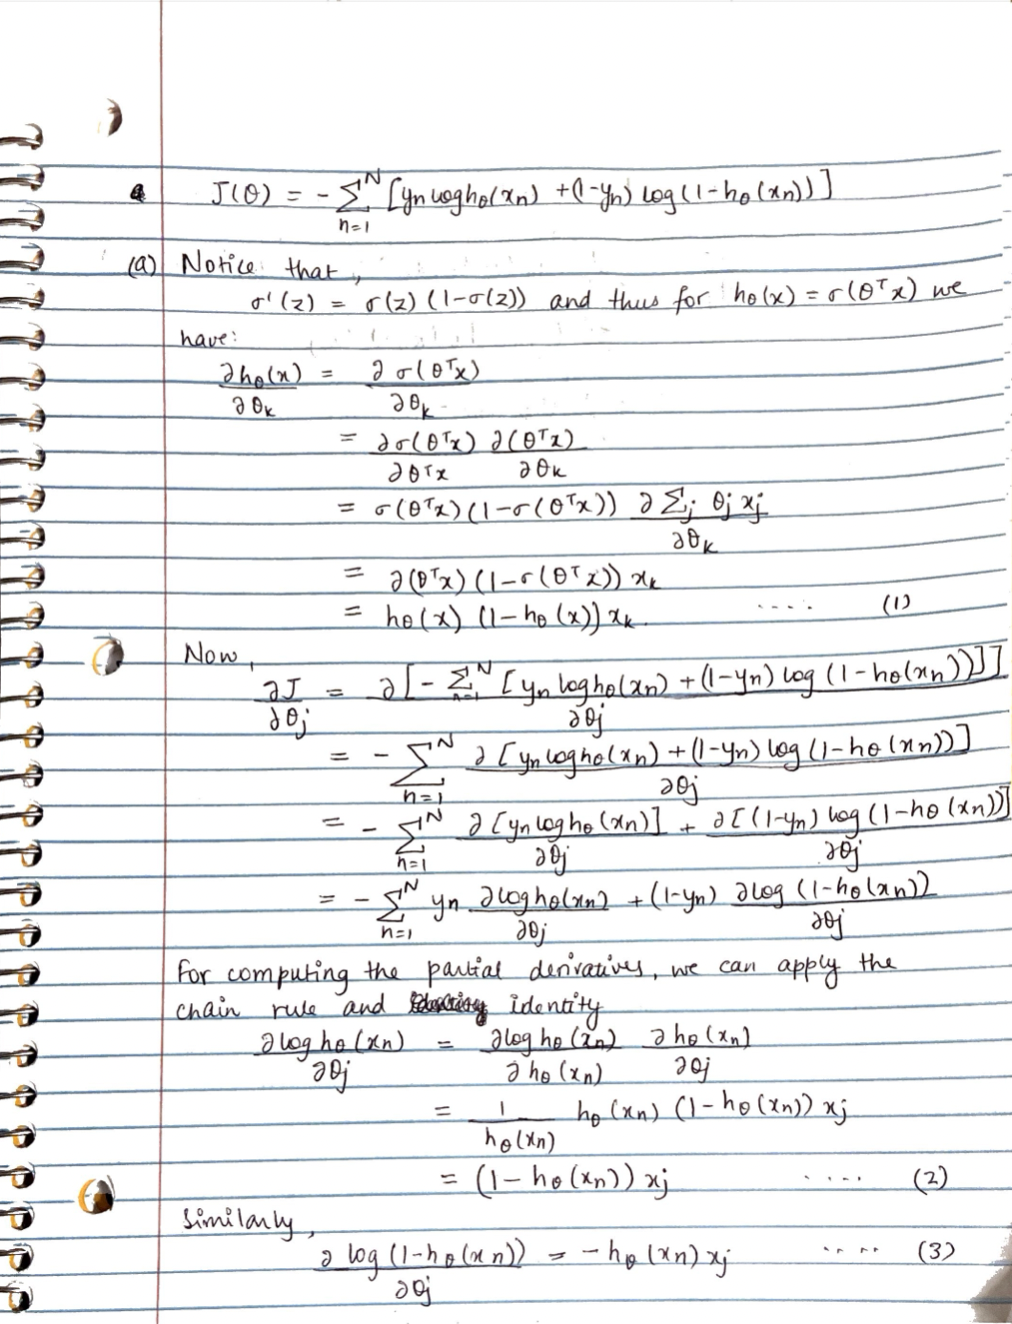 J(θ) = - Σ_{n=1}^{N} [yn log hθ(xn) + (1-yn) log (1-hθ(xn))]
(a) Notice that,
σ'(z) = σ(z) (1-σ(z)) and thus for hθ(x) = σ(θᵀx) we
have:
∂hθ(x)/∂θk = ∂σ(θᵀx)/∂θk
= ∂σ(θᵀx)/∂θᵀx ∂(θᵀx)/∂θk
= σ(θᵀx) (1-σ(θᵀx)) ∂Σj θj xj/∂θk
= ∂(θᵀx) (1-σ(θᵀx)) xk
= hθ(x) (1-hθ(x)) xk ..... (1)
Now,
∂J/∂θj = ∂[- Σ_{n=1}^{N} [yn log hθ(xn) + (1-yn) log (1-hθ(xn))]]/∂θj
= - Σ_{n=1}^{N} ∂[yn log hθ(xn) + (1-yn) log (1-hθ(xn))]/∂θj
= - Σ_{n=1}^{N} ∂[yn log hθ(xn)]/∂θj + ∂[(1-yn) log (1-hθ(xn))]/∂θj
= - Σ_{n=1}^{N} yn ∂log hθ(xn)/∂θj + (1-yn) ∂log (1-hθ(xn))/∂θj
For computing the partial derivatives, we can apply the
chain rule and identity
∂log hθ(xn)/∂θj = ∂log hθ(xn)/∂hθ(xn) ∂hθ(xn)/∂θj
= 1/hθ(xn) hθ(xn) (1-hθ(xn)) xj
= (1-hθ(xn)) xj ..... (2)
Similarly,
∂log (1-hθ(xn))/∂θj = -hθ(xn) xj ..... (3)